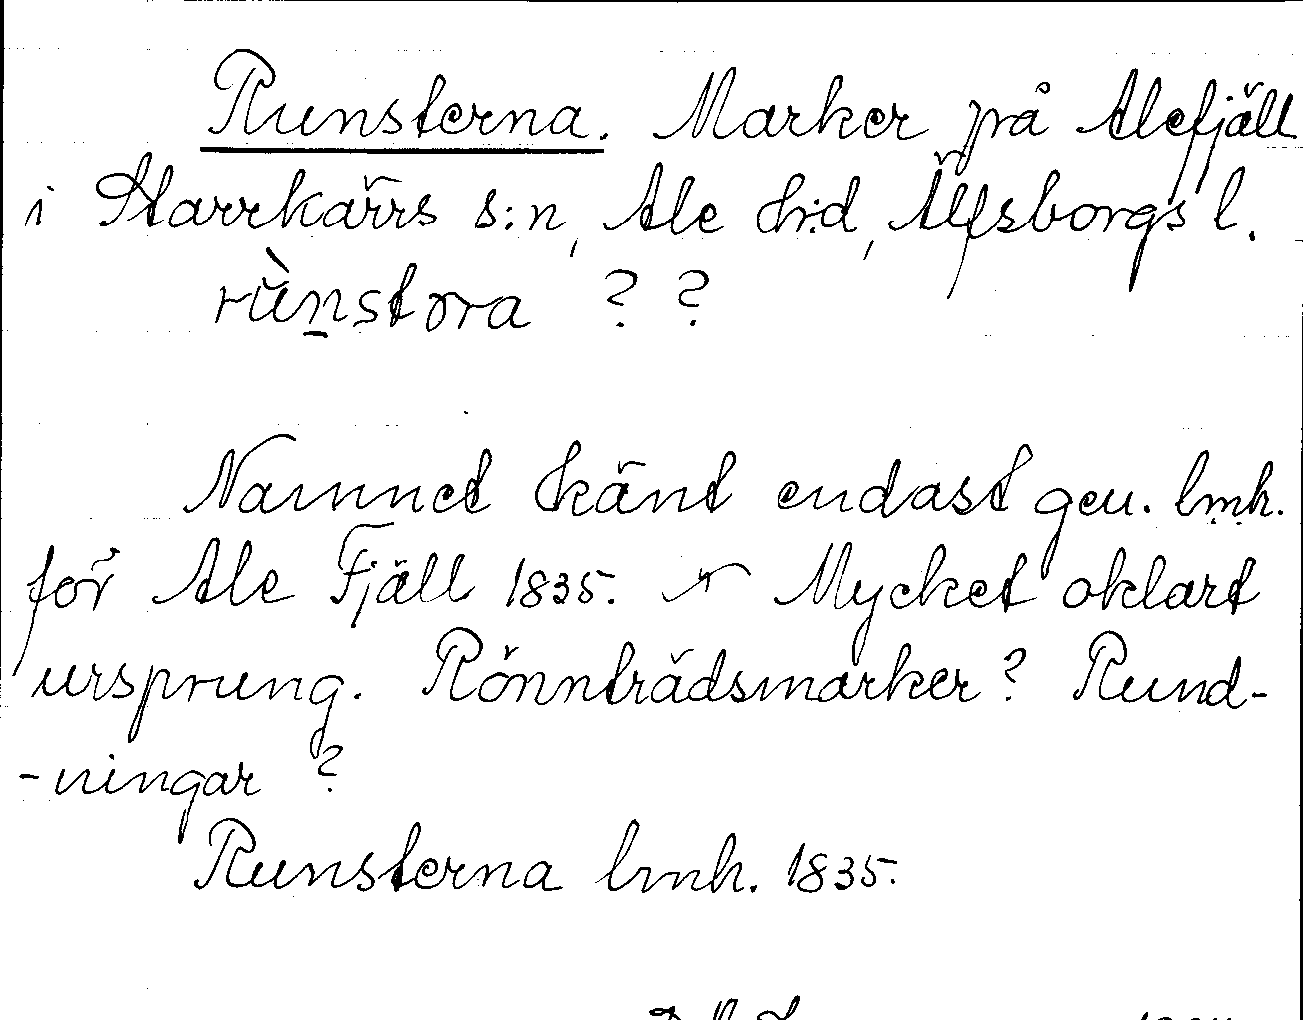 Runsterna. Marker på Alefjäll
i Starrkärrs s:n, Ale h:d, Älfsborgs l.
rùnstora ? ?
Namnet känt endast gen. lmh.
för Ale Fjäll 1835. Mycket oklart
ursprung. Rönnträdsmarker? Rund-
-ningar ?
Runsterna lmh. 1835.